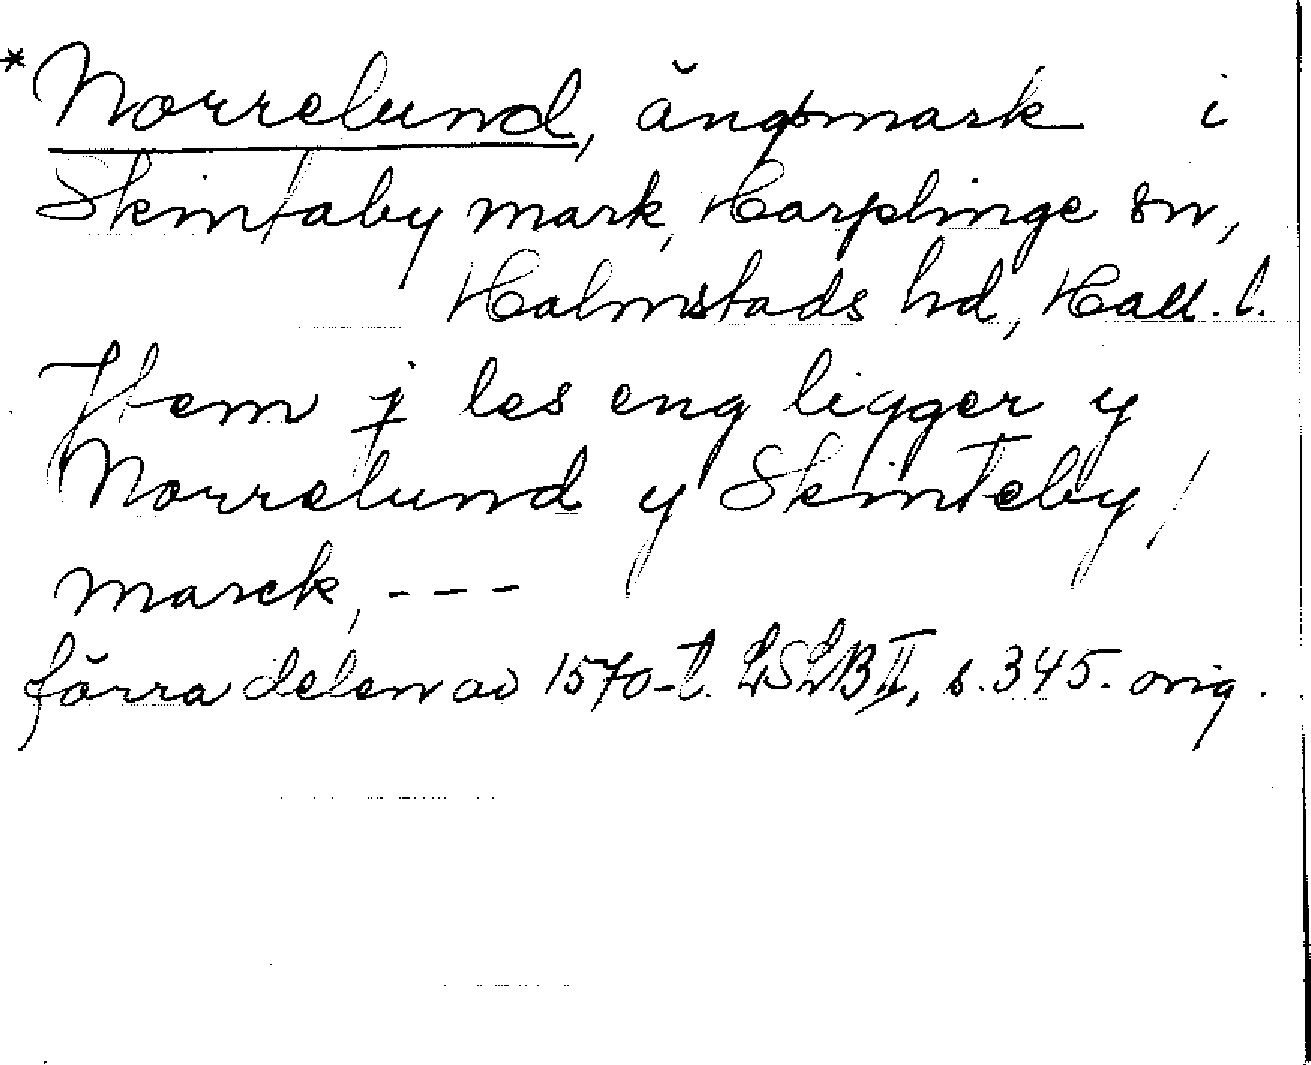 *Norrelund, ängsmark i
Skintaby mark, Harplinge sn,
Halmstads hd, Hall. l.
Jtem j les eng ligger y
Norrelund y Skinteby /
marck, - - -
förra delen av 1570-t. LSLB II, s. 345. orig.